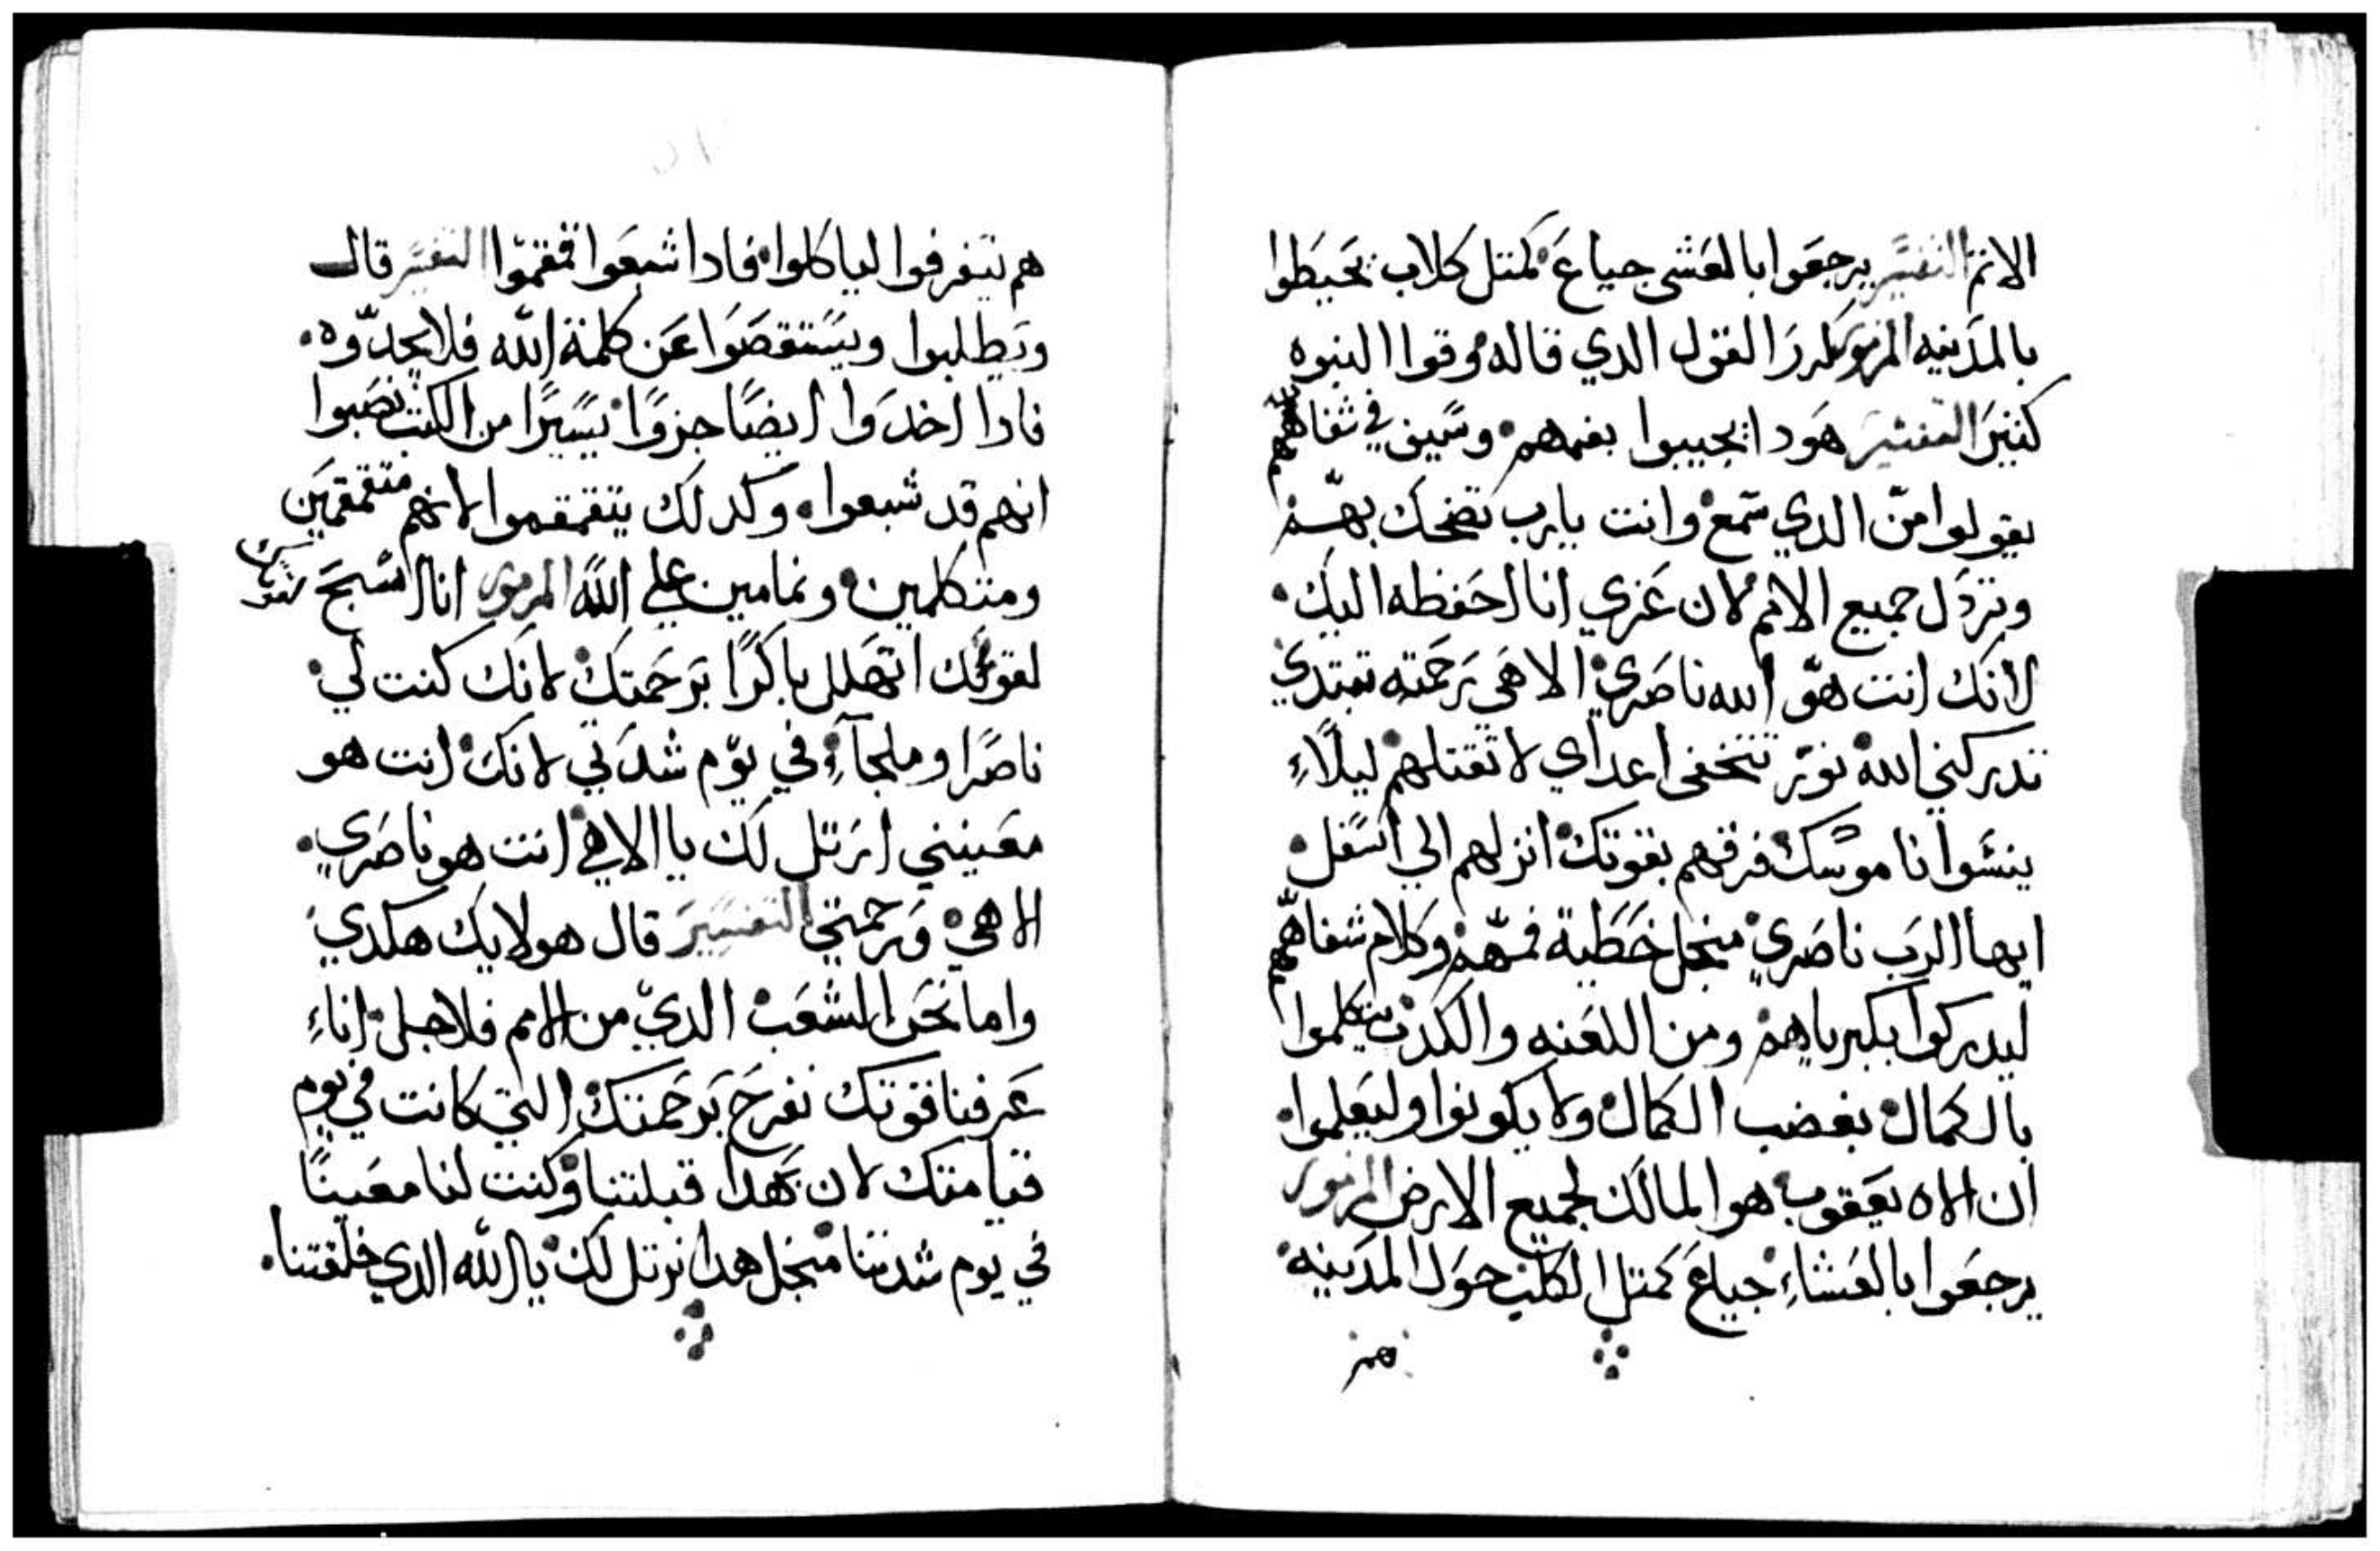 الاثم التفسير يرجعوا بالعشي جياع كمتل كلاب يحيطوا
بالمدينه المزمور كرر القول الدي قاله وقوا البنوه
كتير التفسير هودا يجيبوا بفمهم وسيف في شفاههم
يقولوا من الدي سمع وانت يارب تضحك بهم
وتردل جميع الامم لان عزي انا احفظه اليك
لانك انت هو الله ناصري الاهي رحمته تبتدي
تدركني الله نور تتخفى اعداي لا تقتلهم ليلاء
ينسوا ناموسك فرقهم بقوتك انزلهم الي اسفل
ايها الرب ناصري منجل خطية فمهم وكلام شفاههم
ليدركوا بكبرياهم ومن اللعنه والكدب يتكلموا
بالكمال بغضب الكمال ولا يكونوا وليعلموا
ان الاه يعقوب هو المالك لجميع الارض المزمور
يرجعوا بالعشاء جياع كمتل الكلاب حول المدينه
هم
هم يتفرقوا لياكلوا فادا شبعوا تقمقموا التفسير قال
ويطلبوا ويستقصوا عن كلمة الله فلا يجدوه
فادا اخدوا ايضا جزوا يسيرا من الكتب نصبوا
انهم قد شبعوا وكدلك يتقمقموا لانهم متقمقمين
ومتكلمين ونمامين علي الله المزمور انا اسبح
لقوتك اتهلل باكرا برحمتك لانك كنت لي
ناصرا وملجاء في يوم شدتي لانك انت هو
معينني ارتل لك يا الاهي انت هو ناصري
الاهي ورحمتي التفسير قال هولايك هكدي
واما نحن الشعب الدي من الامم فلاجل اناء
عرفنا قوتك نفرح برحمتك التي كانت في يوم
قيامتك لان بهدا قبلتنا وكنت لنا معينا
في يوم شدتنا منجل هدا نرتل لك يا الله الدي خلقتنا